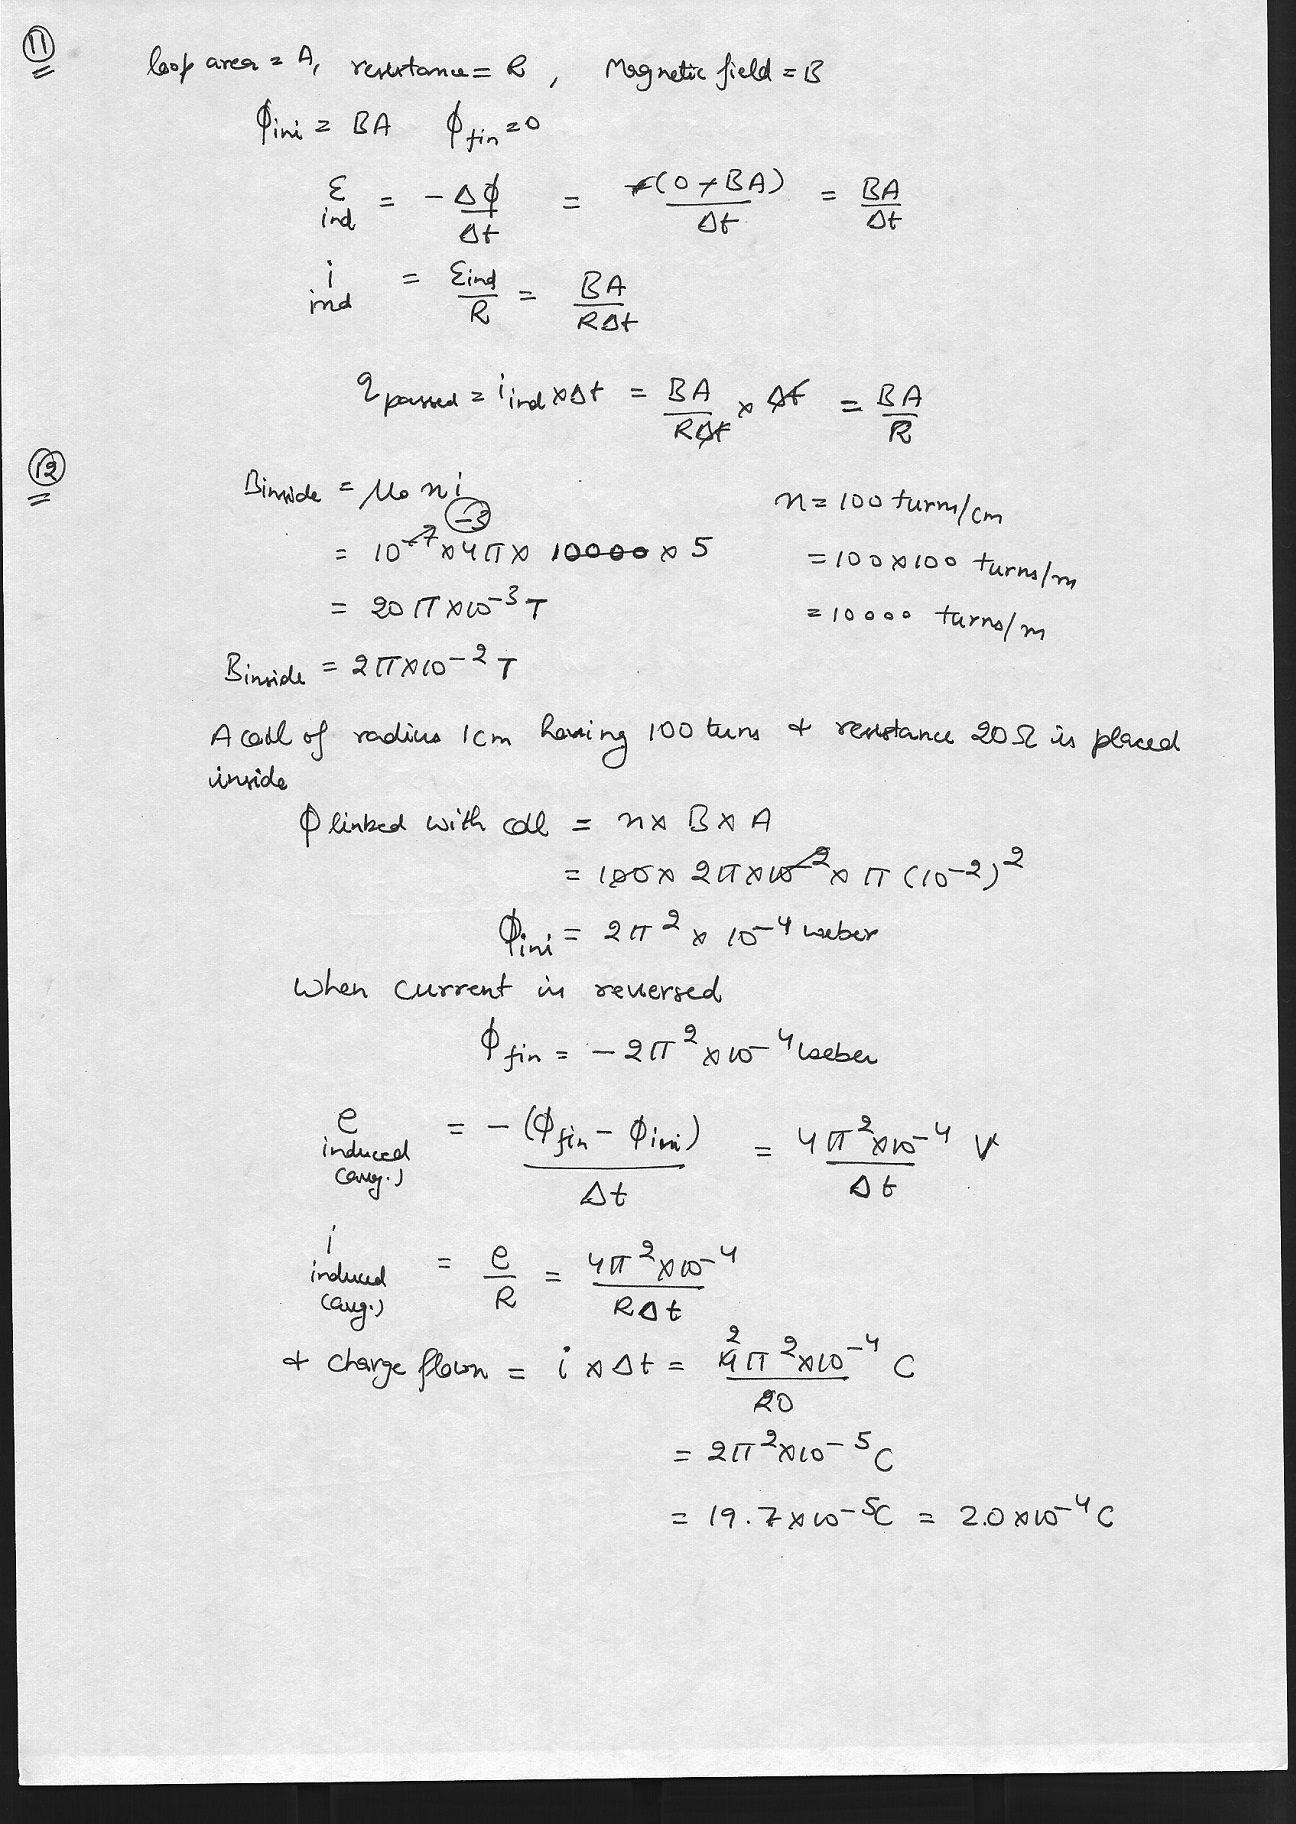 11
loop area = A, resistance = R, Magnetic field = B
ϕini = BA ϕfin = 0
εind = -Δϕ/Δt = -(0-BA)/Δt = BA/Δt
iind = εind/R = BA/RΔt
qpassed = iind×Δt = BA/RΔt × Δt = BA/R
12
Binside = μ0 n i n = 100 turn/cm
-3
= 10^-7 × 4π × 10000 × 5 = 100×100 turns/m
= 20π×10^-3 T = 10000 turns/m
Binside = 2π×10^-2 T
A coil of radius 1cm having 100 turns & resistance 20Ω is placed
inside
ϕ linked with coil = n × B × A
= 100 × 2π×10^-2 × π (10^-2)^2
ϕini = 2π^2 × 10^-4 weber
When current is reversed
ϕfin = -2π^2 × 10^-4 weber
e induced (avg.) = -(ϕfin - ϕini)/Δt = 4π^2×10^-4/Δt V
i induced (avg.) = e/R = 4π^2×10^-4/RΔt
& charge flown = i × Δt = 4π^2×10^-4/20 C
= 2π^2×10^-5 C
= 19.7×10^-5 C = 2.0×10^-4 C